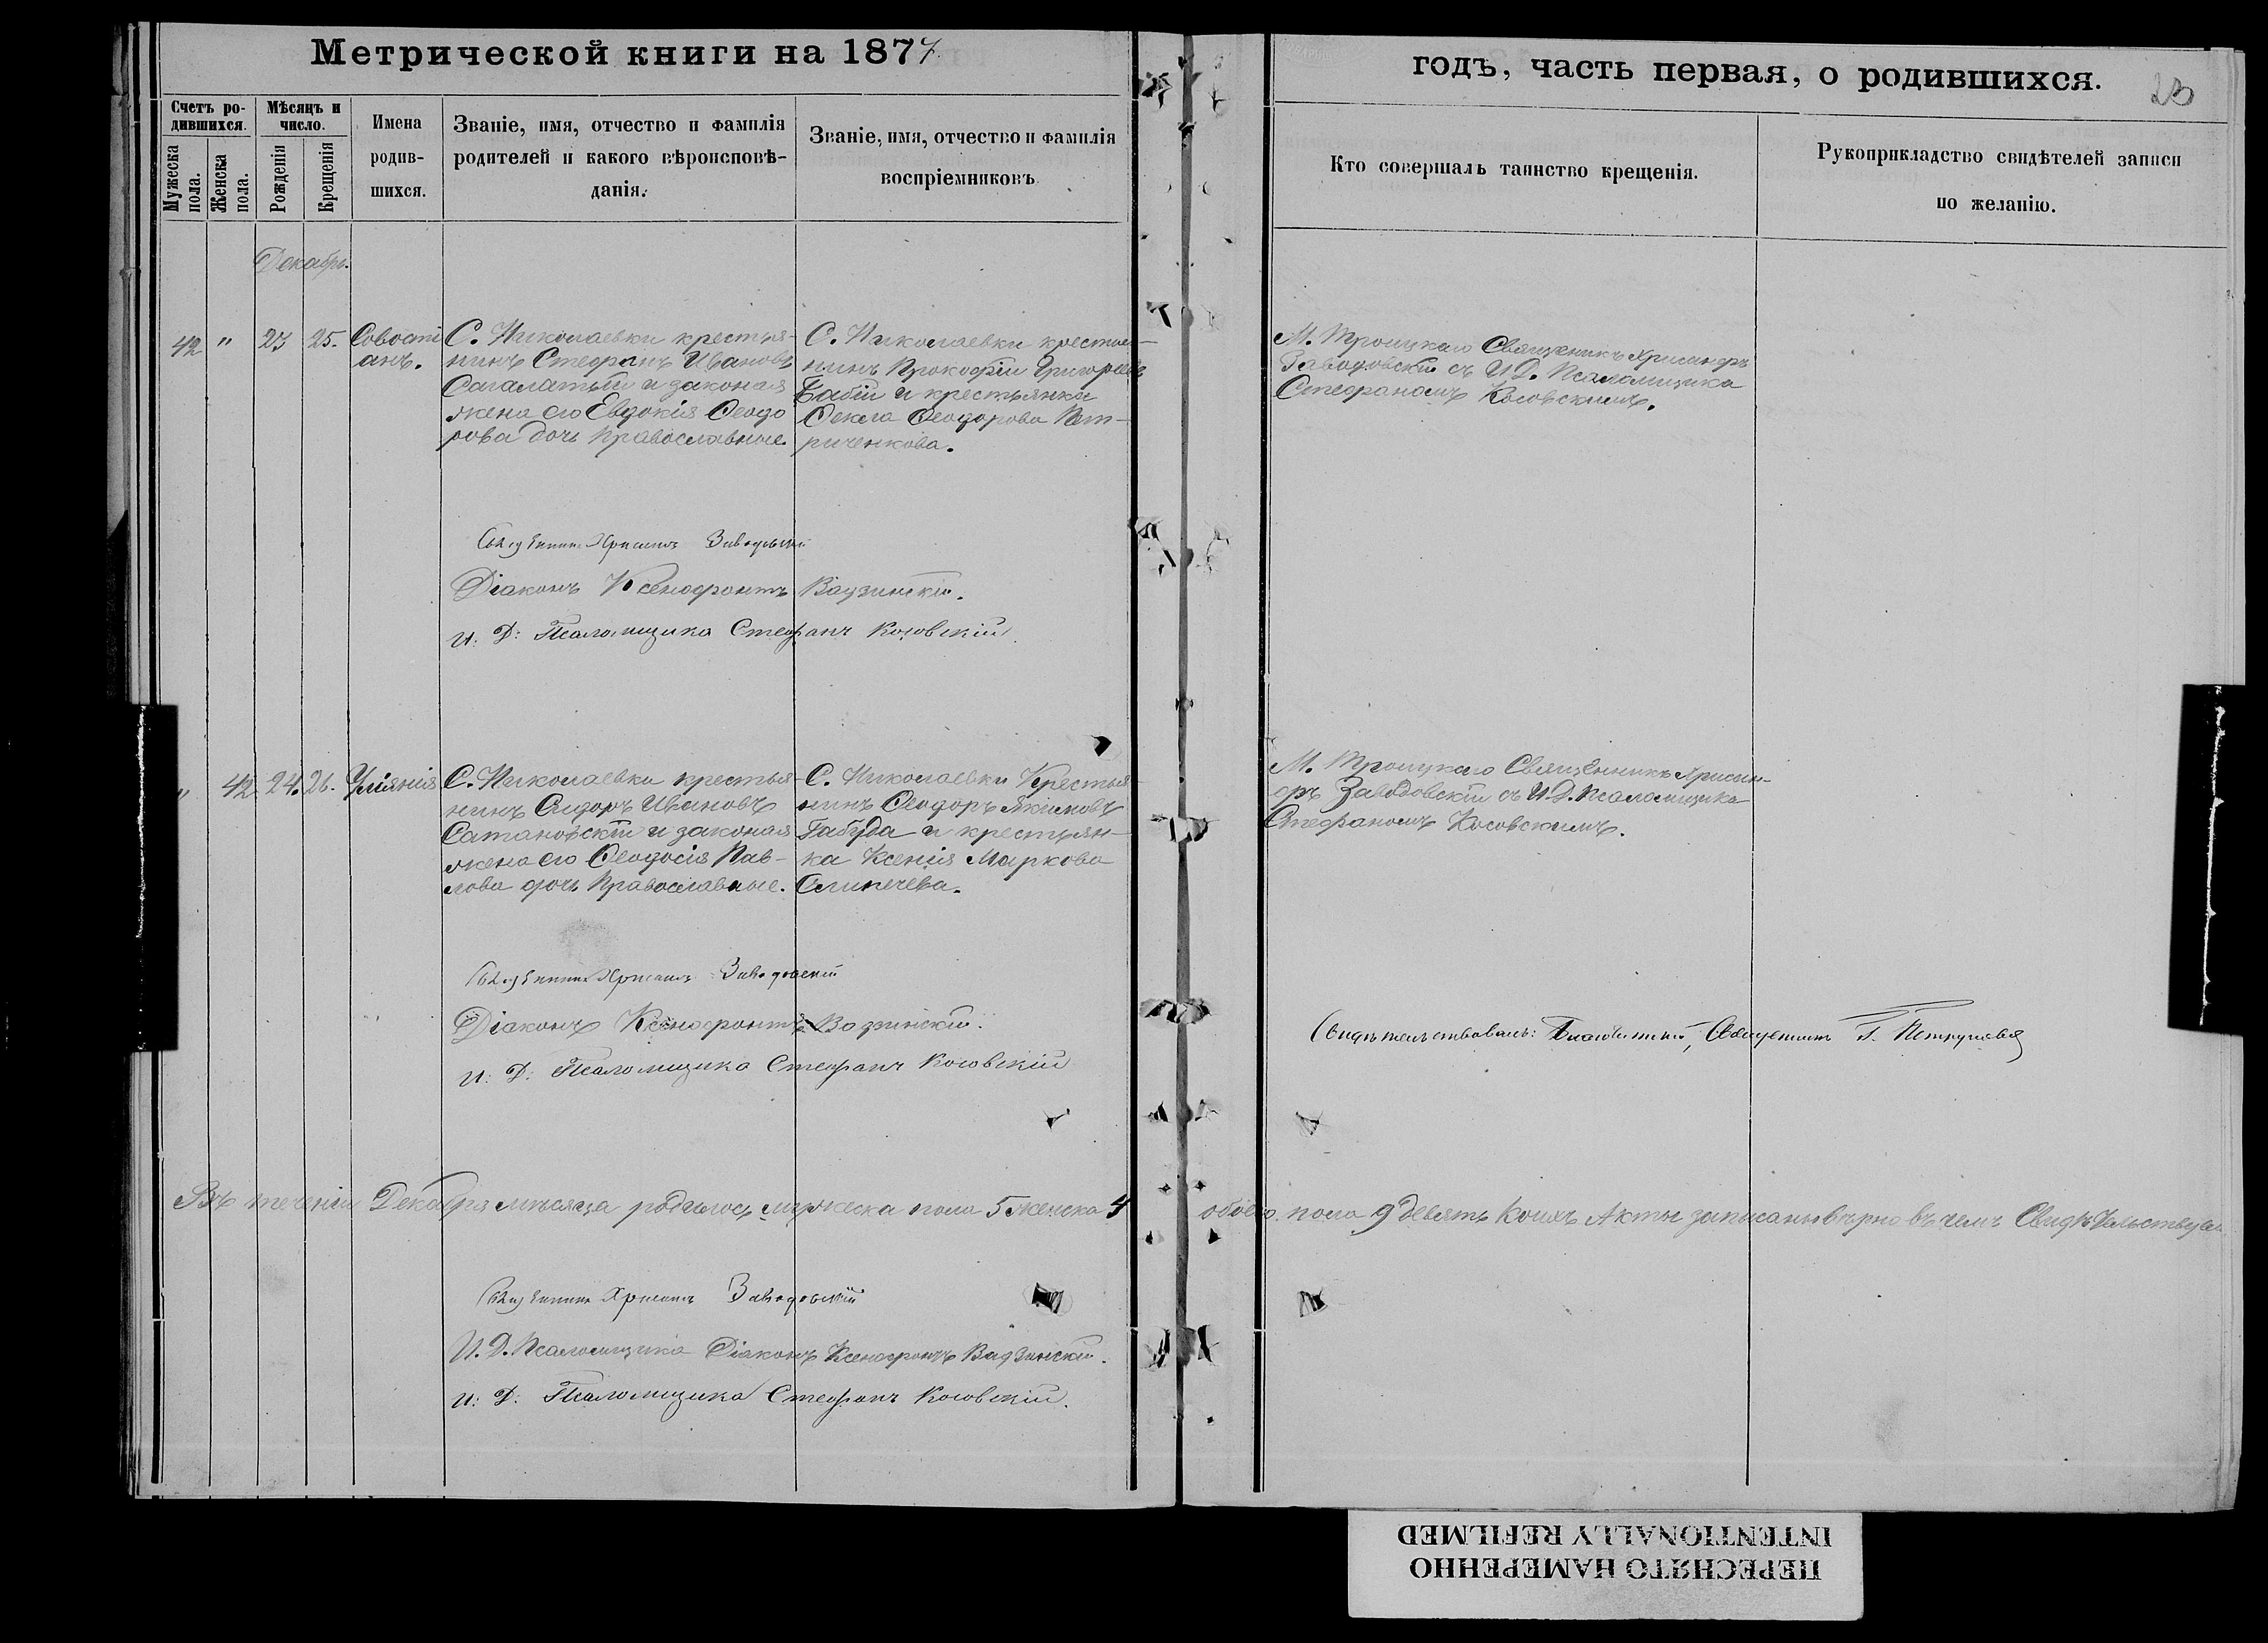 Метрической книги на 1877
годъ, часть первая, о родившихся.
23
Счетъ ро-
дившихся.
Мужеска
пола.
Женска
пола.
Мѣсяцъ и
число.
Рожденія
Крещенія
Имена
родив-
шихся.
Званіе, имя, отчество и фамилія
родителей и какого вѣроисповѣ-
данія.
Званіе, имя, отчество и фамилія
воспріемниковъ
Кто совершалъ таинство крещенія.
Рукоприкладство свидѣтелей записи
по желанію.
Декабрь.
42
"
23
25.
Совости
анъ.
С. Николаевки крестья-
нинъ Стефанъ Ивановъ
и законая
жена его Евдокія Ѳеодо
рова дочь православные.
С. Николаевки крестья-
нинъ Прокофій Григорьевъ
Бабій и крестьянка
Ѳекла Ѳеодорова Пет-
риченкова.
М. Троицкаго Священикъ Хрисанфъ
Заводовскій съ И.Д. Псаломщика
Стефаномъ Косовскимъ.
Священникъ Хрисанфъ Заводовскій
Діаконъ Ксенофонтъ Вадзинскій.
И: Д: Псаломщика Стефанъ Косовскій.
"
42.
24.
26.
Уліянія
С. Николаевки крестья-
нинъ Сидоръ Ивановъ
Сатановскій и законая
жена его Ѳеодосія Пав-
лова дочь Православные.
С. Николаевки Крестья
нинъ Ѳеодоръ Якимовъ
Габуда и крестьян-
ка Ксенія Маркова
М. Троицкаго Священникъ Хрисан-
фъ Заводовскій съ И.Д. Псаломщика
Стефаномъ Косовскимъ.
Священникъ Хрисанфъ Заводовскій
Діаконъ Ксенофонтъ Вадзинскій.
И: Д: Псаломщика Стефанъ Косовскій
Свидѣтельствовалъ: Благочинный, Священникъ
Въ теченіи Декабря мѣсяца родилось мужеска пола 5 женска 4 обоего пола 9 девять коихъ Акты записаны вѣрно въ чемъ
Священникъ Хрисанфъ Заводовскій
И.Д. Псаломщика Діаконъ Ксенофонтъ Вадзинскій.
И: Д: Псаломщика Стефанъ Косовскій.
ПЕРЕСНЯТО НАМЕРЕННО
INTENTIONALLY REFILMED